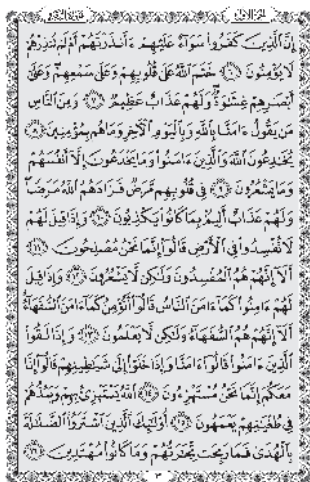 الجزء الأول سورة البقرة
إِنَّ ٱلَّذِينَ كَفَرُواْ سَوَآءٌ عَلَيْهِمْ ءَأَنذَرْتَهُمْ أَمْ لَمْ تُنذِرْهُمْ
لَا يُؤْمِنُونَ ٦ خَتَمَ ٱللَّهُ عَلَىٰ قُلُوبِهِمْ وَعَلَىٰ سَمْعِهِمْ وَعَلَىٰٓ
أَبْصَٰرِهِمْ غِشَٰوَةٌ وَلَهُمْ عَذَابٌ عَظِيمٌ ٧ وَمِنَ ٱلنَّاسِ
مَن يَقُولُ ءَامَنَّا بِٱللَّهِ وَبِٱلْيَوْمِ ٱلْأٓخِرِ وَمَا هُم بِمُؤْمِنِينَ ٨
يُخَٰدِعُونَ ٱللَّهَ وَٱلَّذِينَ ءَامَنُواْ وَمَا يَخْدَعُونَ إِلَّآ أَنفُسَهُمْ
وَمَا يَشْعُرُونَ ٩ فِى قُلُوبِهِم مَّرَضٌ فَزَادَهُمُ ٱللَّهُ مَرَضًا
وَلَهُمْ عَذَابٌ أَلِيمٌۢ بِمَا كَانُواْ يَكْذِبُونَ ١٠ وَإِذَا قِيلَ لَهُمْ
لَا تُفْسِدُواْ فِى ٱلْأَرْضِ قَالُوٓاْ إِنَّمَا نَحْنُ مُصْلِحُونَ ١١
أَلَآ إِنَّهُمْ هُمُ ٱلْمُفْسِدُونَ وَلَٰكِن لَّا يَشْعُرُونَ ١٢ وَإِذَا قِيلَ
لَهُمْ ءَامِنُواْ كَمَآ ءَامَنَ ٱلنَّاسُ قَالُوٓاْ أَنُؤْمِنُ كَمَآ ءَامَنَ ٱلسُّفَهَآءُ
أَلَآ إِنَّهُمْ هُمُ ٱلسُّفَهَآءُ وَلَٰكِن لَّا يَعْلَمُونَ ١٣ وَإِذَا لَقُواْ
ٱلَّذِينَ ءَامَنُواْ قَالُوٓاْ ءَامَنَّا وَإِذَا خَلَوْاْ إِلَىٰ شَيَٰطِينِهِمْ قَالُوٓاْ إِنَّا
مَعَكُمْ إِنَّمَا نَحْنُ مُسْتَهْزِءُونَ ١٤ ٱللَّهُ يَسْتَهْزِئُ بِهِمْ وَيَمُدُّهُمْ
فِى طُغْيَٰنِهِمْ يَعْمَهُونَ ١٥ أُوْلَٰٓئِكَ ٱلَّذِينَ ٱشْتَرَوُاْ ٱلضَّلَٰلَةَ
بِٱلْهُدَىٰ فَمَا رَبِحَت تِّجَٰرَتُهُمْ وَمَا كَانُواْ مُهْتَدِينَ ١٦
٣